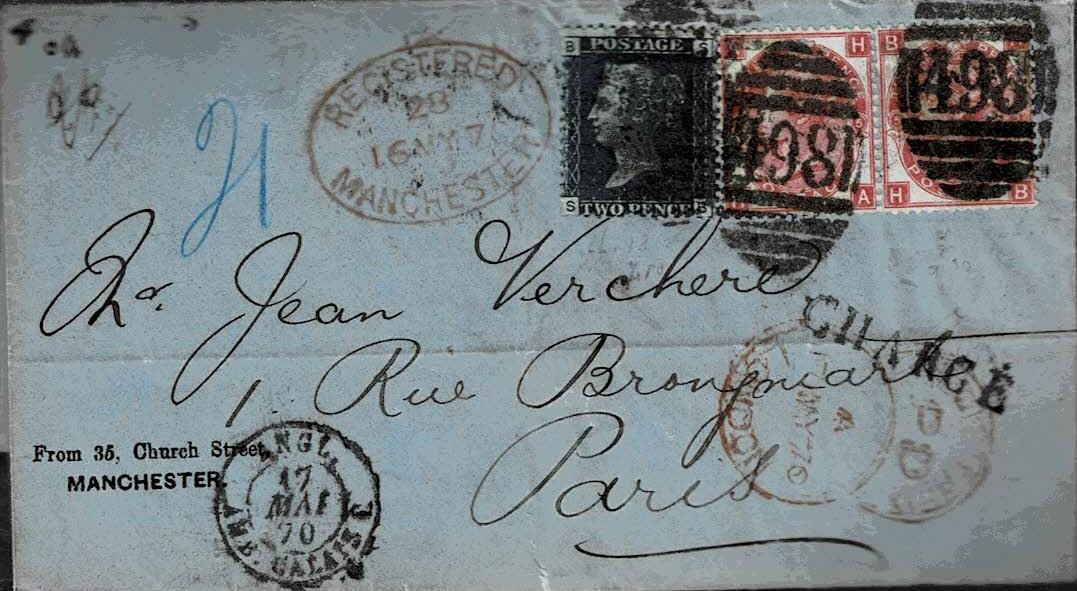 REGISTERED
28
16 MY 7
MANCHESTER
21
B POSTAGE S
S TWO PENCE B
H
A
B
H
B
498
498
Mr. Jean Verchere
1, Rue Brongniart
Paris
CHARGÉ
From 35, Church Street,
MANCHESTER.
ANGL.
17
MAI
70
AMB. CALAIS
A
MY-70
PD